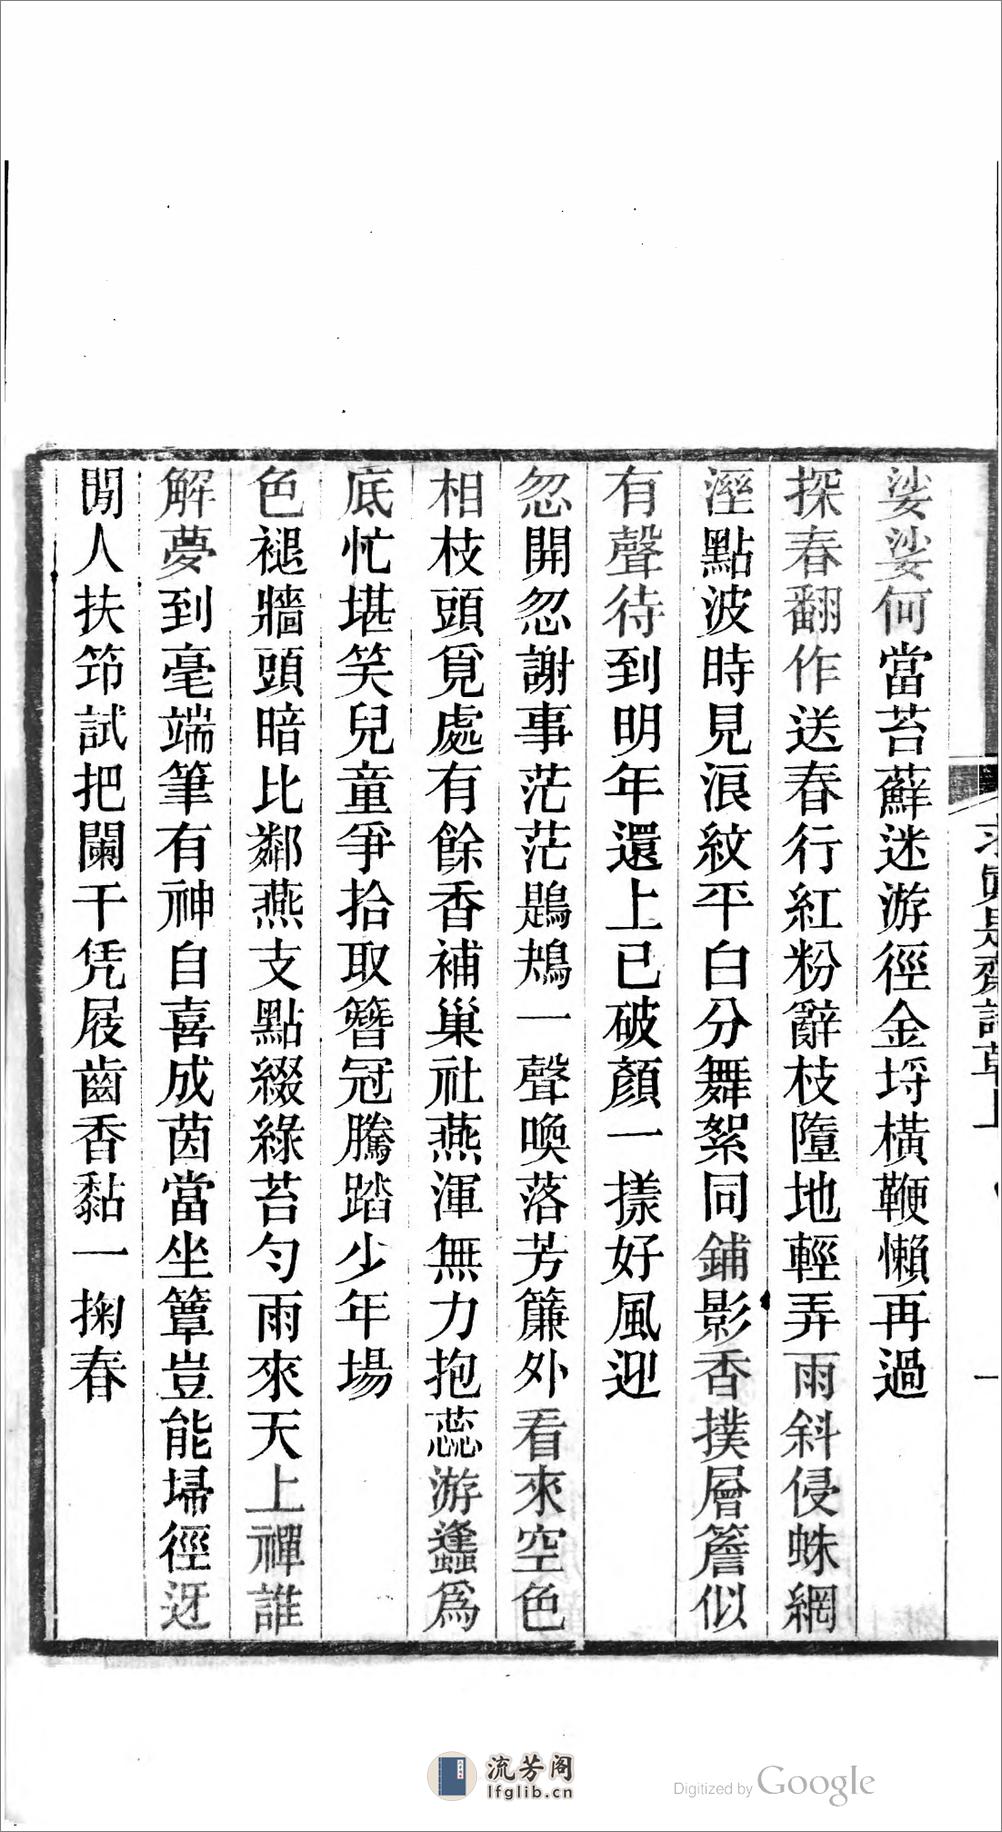 娑娑何當苔蘚迷游徑金埒橫鞭懶再過
探春翻作送春行紅粉辭枝墮地輕弄雨斜侵蛛網
溼點波時見浪紋平白分舞絮同鋪影香撲層簷似
有聲待到明年還上已破顏一㨾好風迎
忽開忽謝事茫茫鶗鴂一聲喚落芳簾外看來空色
相枝頭覓處有餘香補巢社燕渾無力抱蕊游蠭爲
底忙堪笑兒童爭拾取簪冠騰踏少年場
色褪牆頭暗比鄰燕支點綴綠苔勻雨來天上禪誰
解夢到毫端筆有神自喜成茵當坐簟豈能埽徑迓
閒人扶笻試把闌干凭屐齒香黏一掬春
是齋詩草上
一
流芳阁
lfglib.cn
Digitized by Google